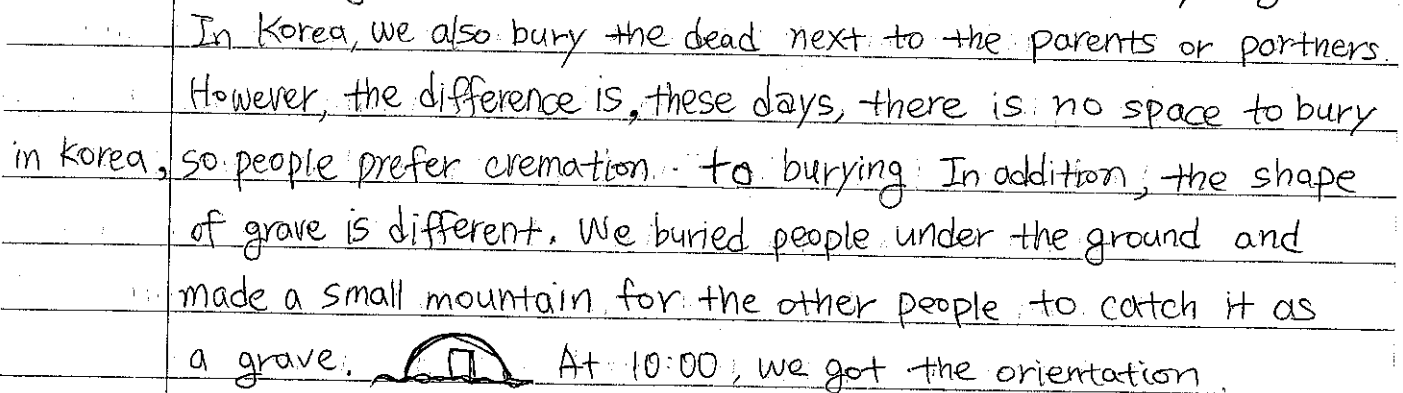 In Korea, we also bury the dead next to the parents or partners.
However, the difference is, these days, there is no space to bury
in Korea, so people prefer cremation to burying. In addition, the shape
of grave is different. We buried people under the ground and
made a small mountain for the other people to catch it as
a grave. At 10:00, we got the orientation.